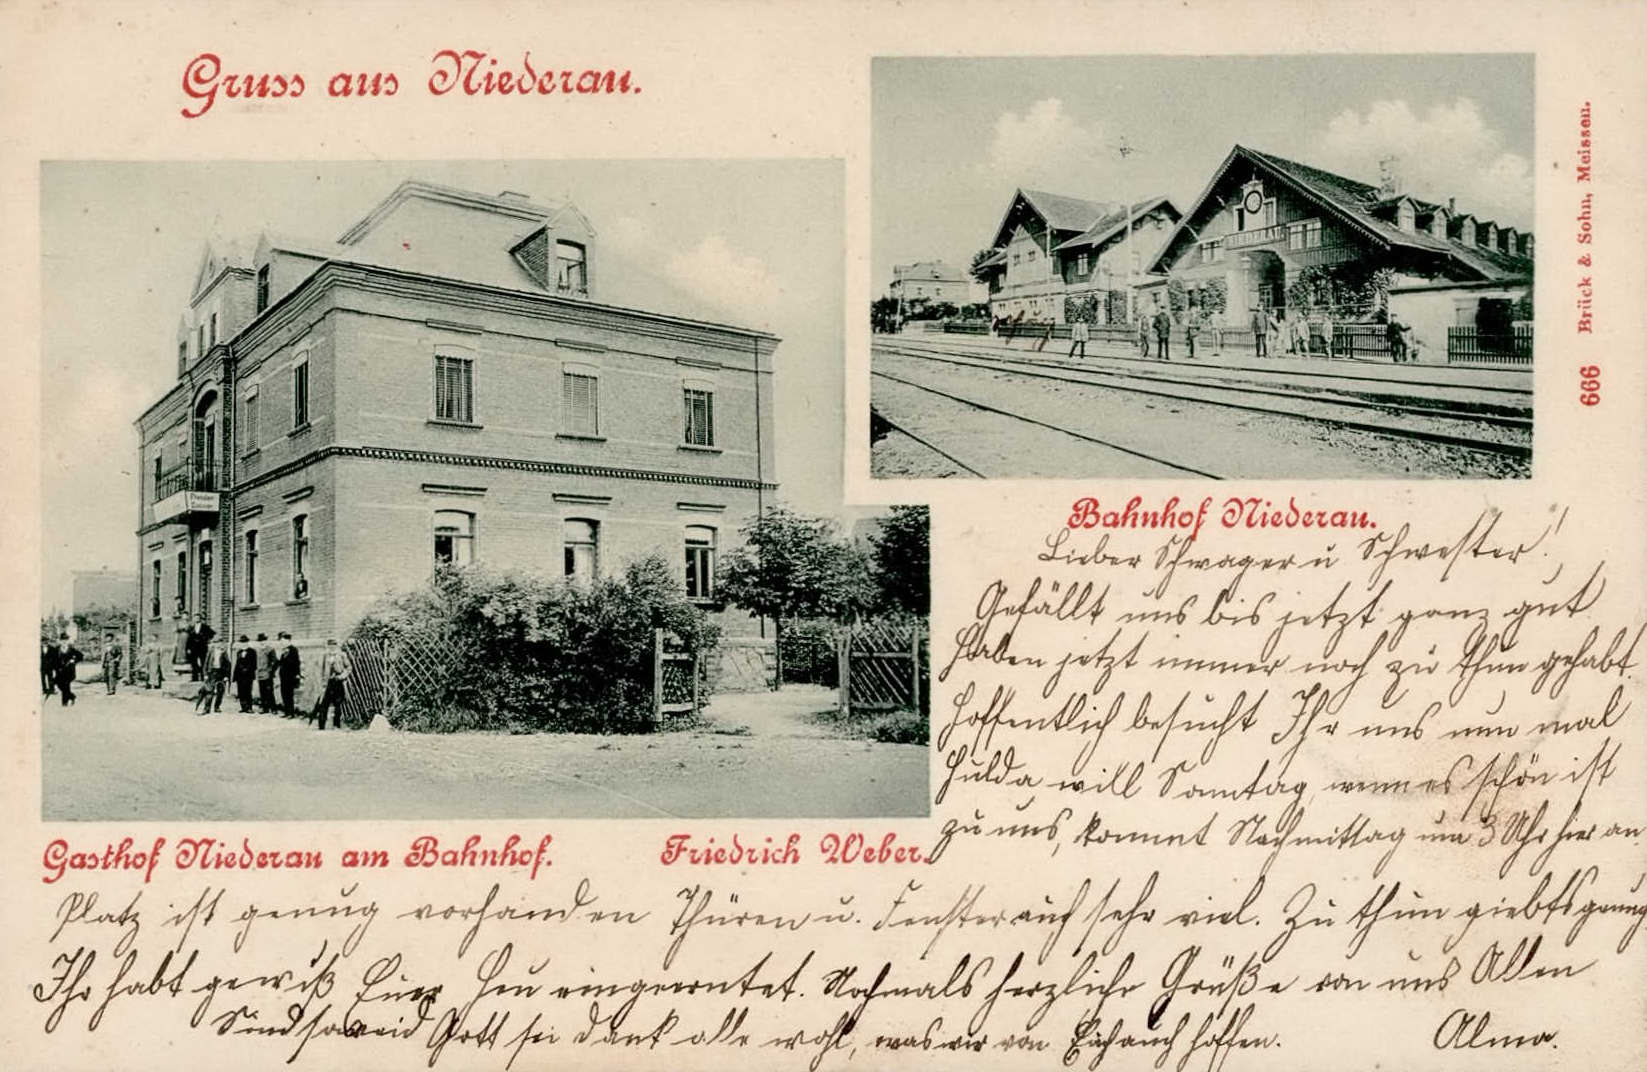 Gruss aus Niederau.
Brück & Sohn, Meissen.
666
NIEDERAU
Bahnhof Niederau.
Lieber Schwager u Schwester!
Gefällt uns bis jetzt ganz gut
Haben jetzt immer noch zu thun gehabt.
Hoffentlich besucht Ihr uns nun mal
Hulda will Sonntag, wenn es schön ist
zu uns, kommt Nachmittag um 3 Uhr hier an.
Gasthof Niederau am Bahnhof. Friedrich Weber.
Platz ist genug vorhanden Thüren u. Fenster auch sehr viel. Zu thun giebts genug
Ihr habt gewiß Euer Heu eingeerntet. Nochmals herzliche Grüße von uns Allen
Sind soweid Gott sei dank alle wohl, was wir von Euch auch hoffen. Alma.